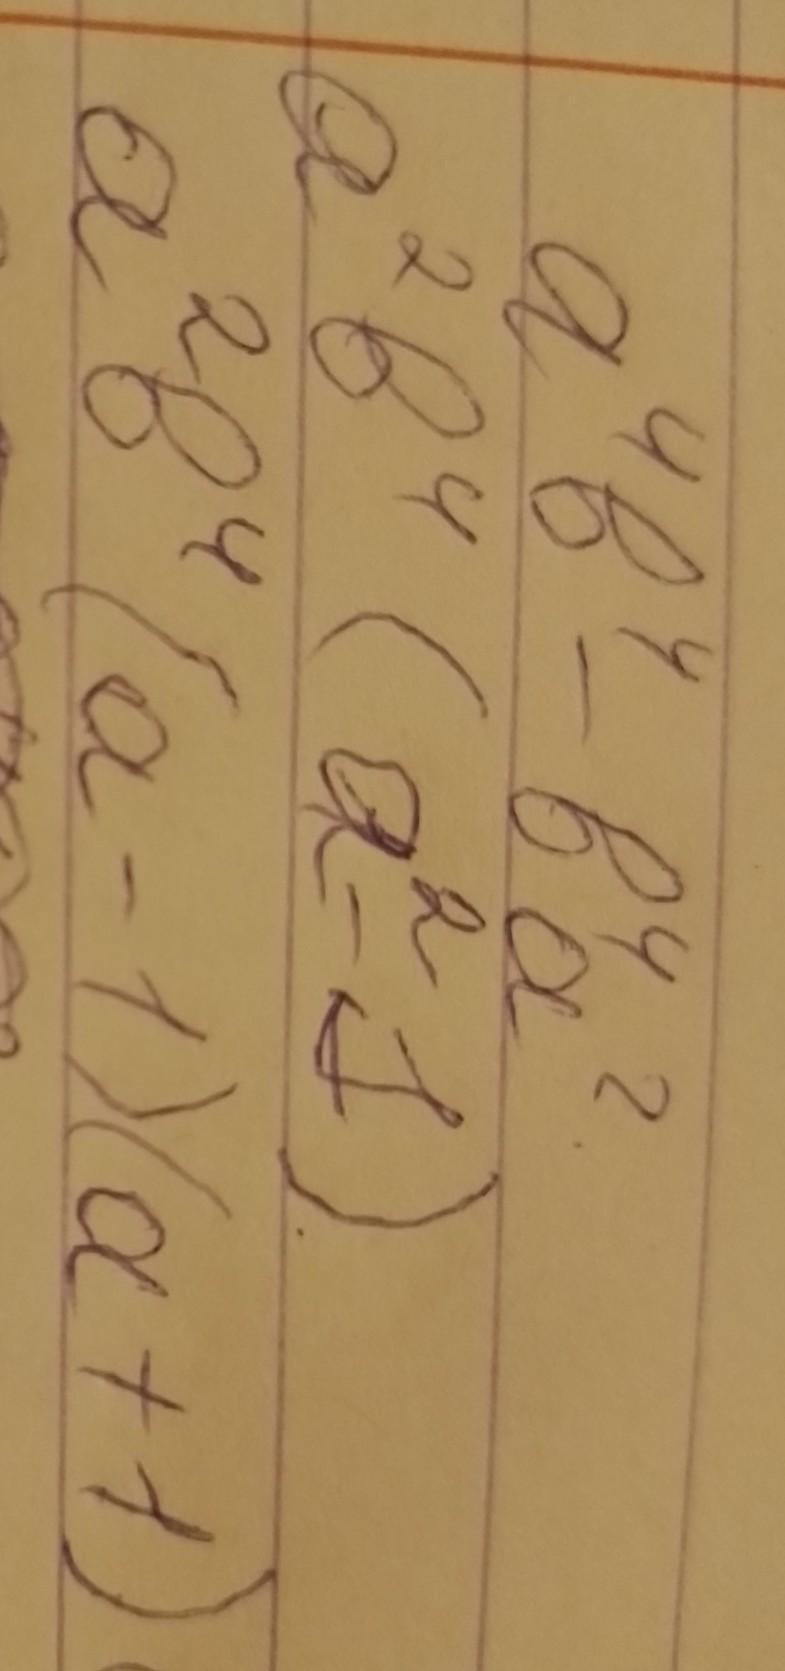 a⁴b⁴ - b⁴a²
a²b⁴(a² - 1)
a²b⁴(a - 1)(a + 1)